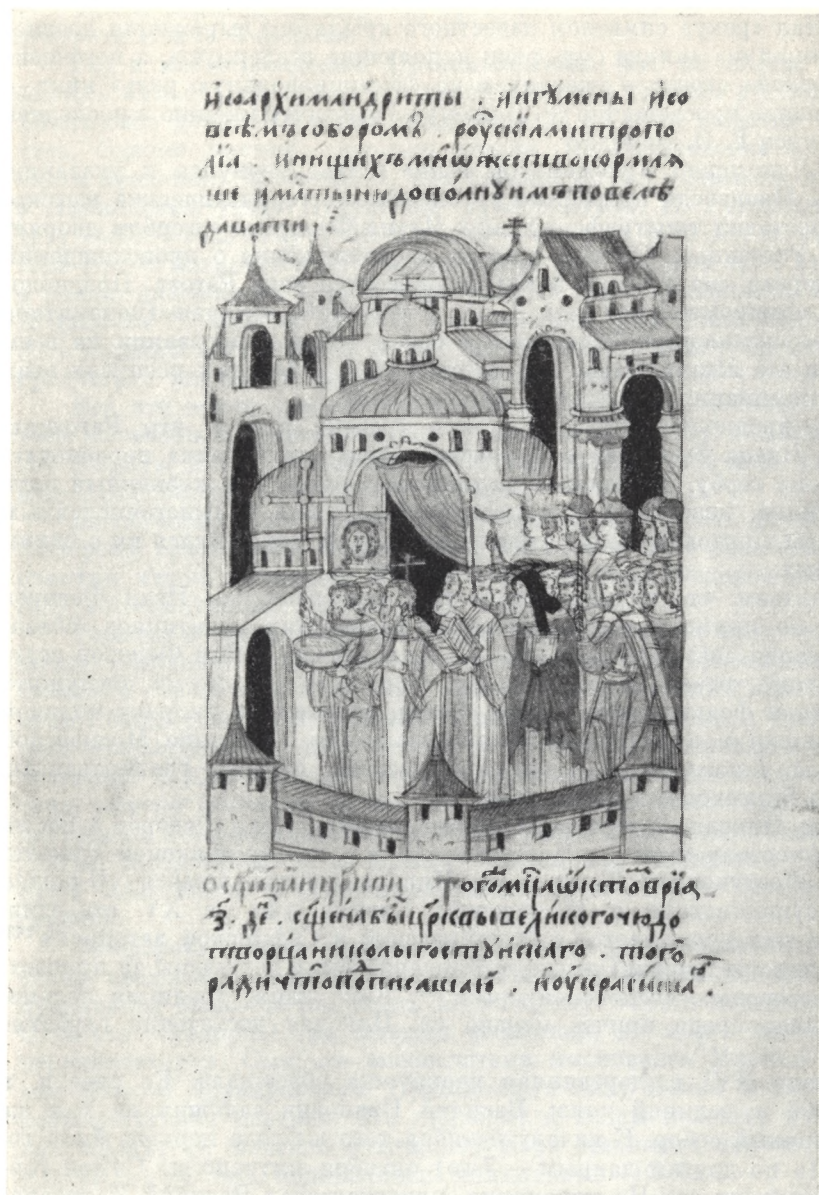 и со архимандриты . и игумены и со
всѣмъ собором . роускїѧ митропо
лїа . и нищихъ мнѡжество кормлѧ
ше и мл҃тыню доволну имъ повелѣ
давати :
Ѡ сщ҃ении цр҃кви Тогѡ мц҃а ѡктоврїа
з҃ . де . сщ҃ена бы цр҃квь великого чюдо
творца николы гостунскаго . того
ради что подписаша ю . и оукрасиша ю .